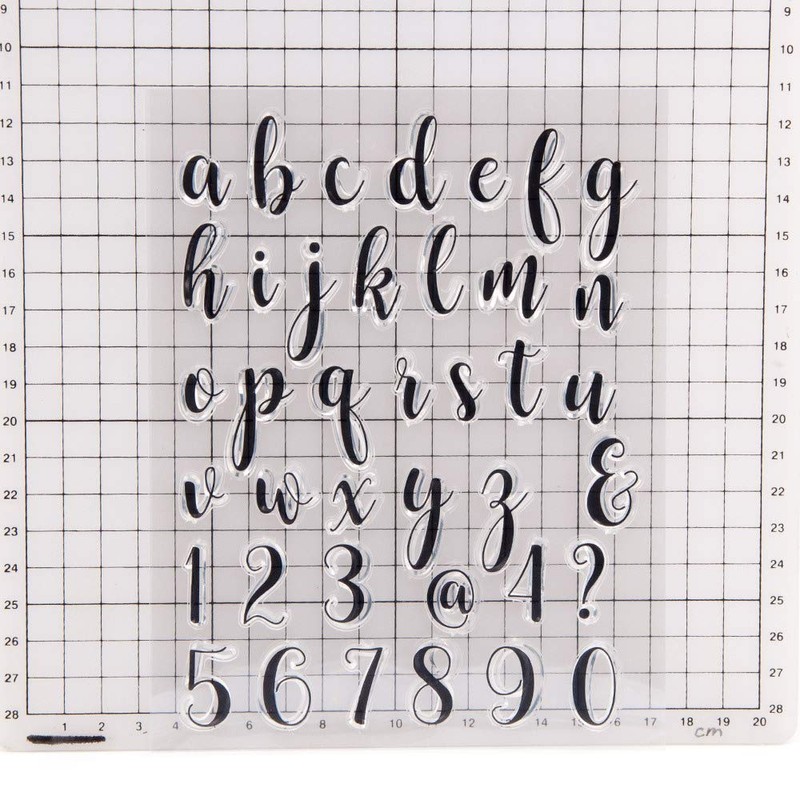 9 9
10 10
11 11
12 12
a b c d e f g
13 13
14 14
15 15
h i j k l m n
16 16
17 17
18 18
o p q r s t u
19 19
20 20
21 21
v w x y z &
22 22
23 23
24 24
1 2 3 @ 4 ?
25 25
26 26
5 6 7 8 9 0
27 27
28 28
1 2 3 4 6 8 10 12 14 15 16 17 18 19 20
cm